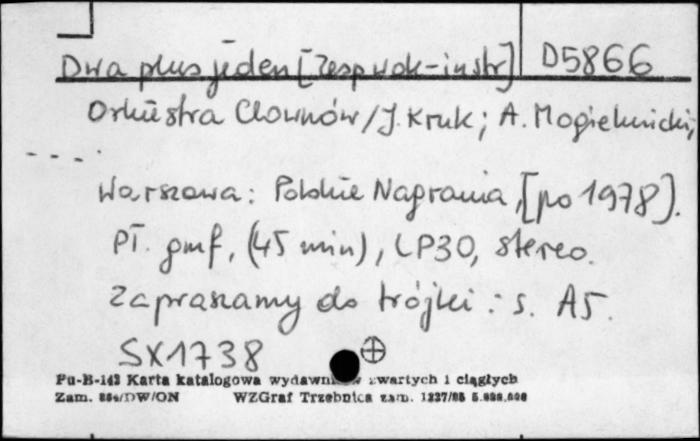 Dwa plus jeden [Zesp wok-instr] D5866
Orkiestra Clownów/J. Kruk; A. Mogielnicki;
- - - .
Warszawa: Polskie Nagrania, [po 1978].
Pł. gmf, (45 min), LP30, stereo.
Zapraszamy do trójki: s. A5.
SX1738
Pu-B-142 Karta katalogowa zwartych i ciągłych
Zam. /DW/ON WZGraf Trzebnica zam. 1227/85